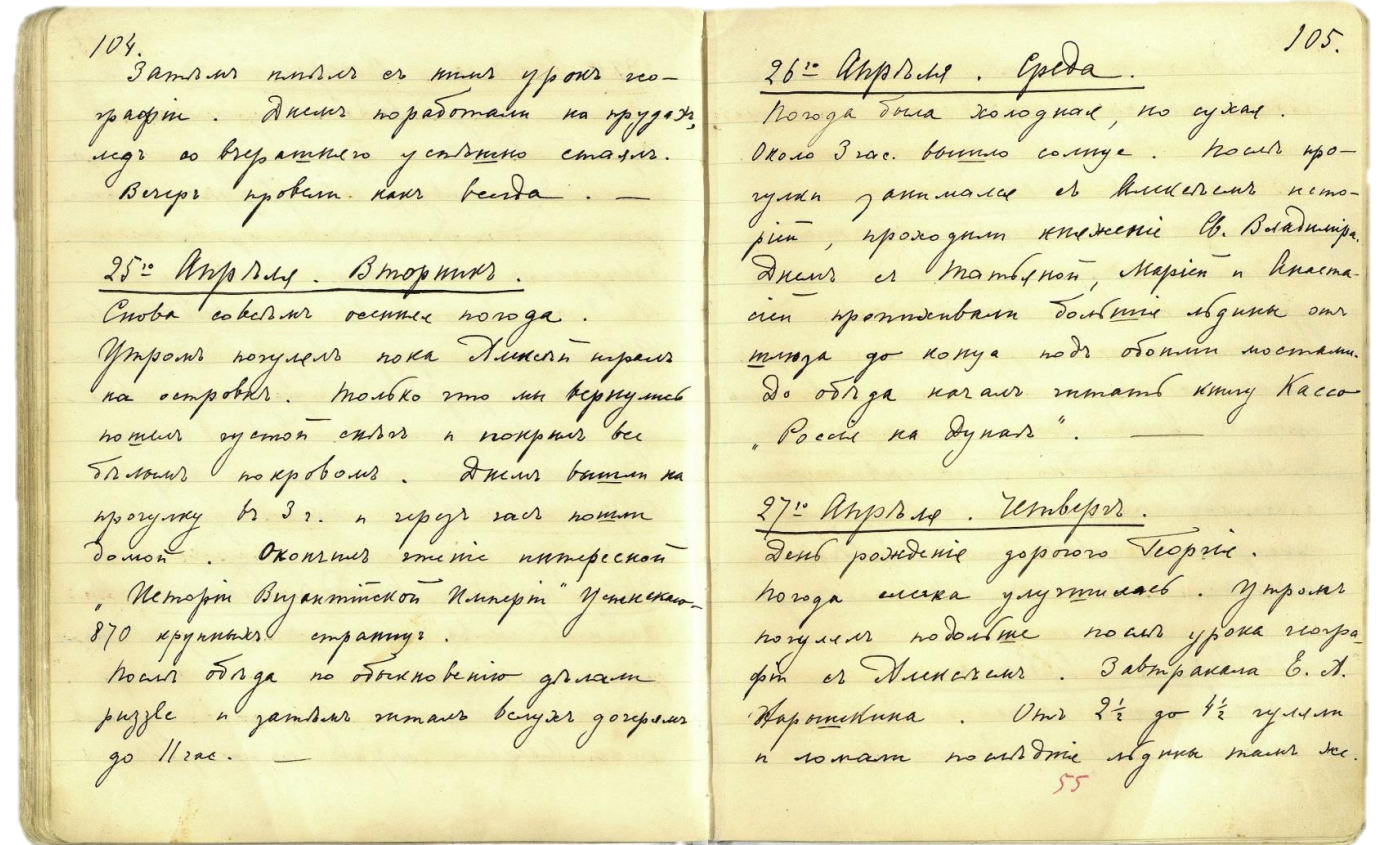 104.
Затѣмъ имѣлъ съ нимъ урокъ гео-
графіи. Днемъ поработали на прудахъ,
ледъ со вчерашняго успѣшно стаялъ.
Вечеръ провели какъ всегда. —
25го Апрѣля. Вторникъ.
Снова совсѣмъ осенняя погода.
Утромъ погулялъ пока Алексѣй игралъ
на островкѣ. Только что мы вернулись
пошелъ густой снѣгъ и покрылъ все
бѣлымъ покровомъ. Днемъ вышли на
прогулку въ 3 ч. и черезъ часъ пошли
домой. Окончилъ чтеніе интересной
„Исторіи Византійской Имперіи" Успенскаго-
870 крупныхъ страницъ.
Послѣ обѣда по обыкновенію дѣлали
puzzle и затѣмъ читалъ вслухъ дочерямъ
до 11 час. —
105.
26го Апрѣля. Среда.
Погода была холодная, но сухая.
Около 3 час. вышло солнце. Послѣ про-
гулки занимался съ Алексѣемъ исто-
ріей, проходили княженіе Св. Владиміра.
Днемъ съ Татьяной, Маріей и Анаста-
сіей пропихивали большіе льдины отъ
шлюза до конца подъ обоими мостами.
До обѣда началъ читать книгу Кассо
„Россія на Дунаѣ". —
27го Апрѣля. Четвергъ.
День рожденія дорогого Георгія.
Погода слегка улучшилась. Утромъ
погулялъ подольше послѣ урока геогра-
фіи съ Алексѣемъ. Завтракала Е. А.
Нарышкина. Отъ 2½ до 4½ гуляли
и ломали послѣдніе льдины тамъ же.
55